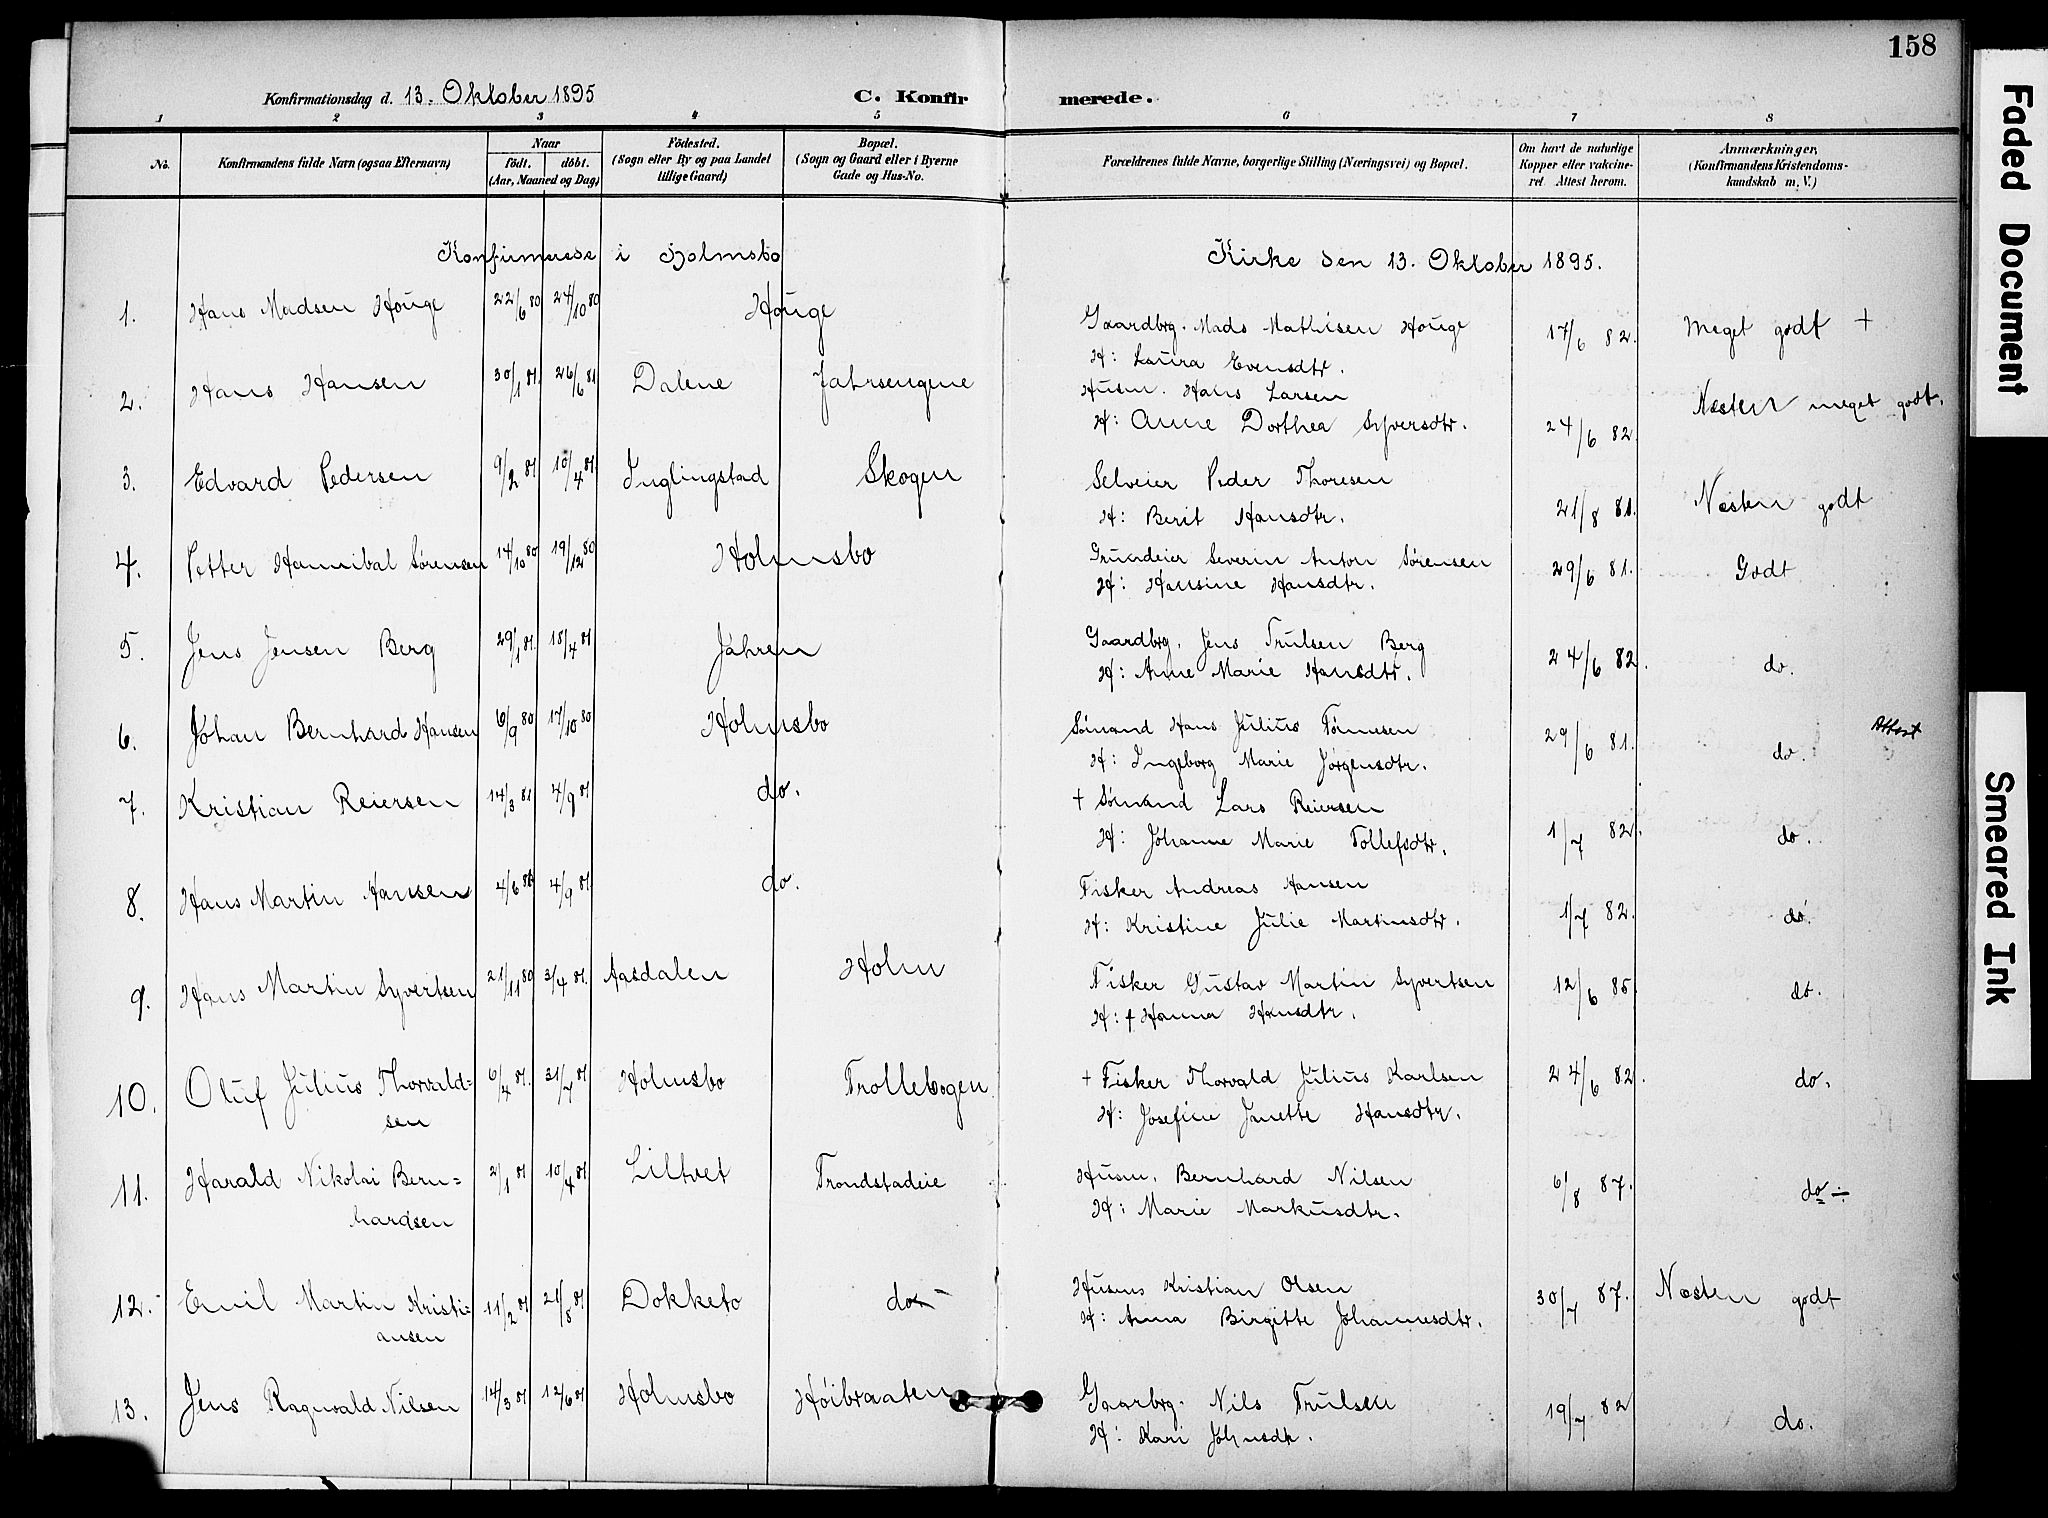 158
Konfirmationsdag d. 13. Oktober 1895 C. Konfirmerede.
1 2 3 4 5 6 7 8
No. Konfirmandens fulde Navn (ogsaa Efternavn) Naar født. døbt. (Aar, Maaned og Dag) Fødested. (Sogn eller By og paa Landet tillige Gaard) Bopæl. (Sogn og Gaard eller i Byerne Gade og Hus-No. Forældrenes fulde Navne, borgerlige Stilling (Næringsvei) og Bopæl. Om havt de naturlige Kopper eller vakcineret Attest herom. Anmærkninger, (Konfirmandens Kristendomskundskab m. V.)
Konfirmerede i Holmsbo Kirke den 13. Oktober 1895.
1. Hans Madsen Houge 22/6 80 24/10 80 Houge Gaardbrg. Mads Mathisen Houge 17/6 82. Meget godt +
H: Laura Evensdtr.
2. Hans Hansen 30/1 81. 26/6 81. Dalene Jahrsengene Husm. Hans Larsen 24/6 82. Næsten meget godt.
H: Anne Dorthea Syversdtr.
3. Edvard Pedersen 9/2 81 10/4 81. Inglingstad Skogen Selveier Peder Thoresen 21/8 81. Næsten godt
H: Berit Hansdtr.
4. Petter Hannibal Sørensen 14/10 80 19/12 80 Holmsbo Grundeier Severin Anton Sørensen 29/6 81. Godt
H: Hansine Hansdtr.
5. Jens Jensen Berg 29/1 81. 18/4 81 Jahren Gaardbrg. Jens Trulsen Berg 24/6 82. do.
H: Anne Marie Hansdtr.
6. Johan Bernhard Hansen 6/9 80 17/10 80 Holmsbo Sømand Hans Julius Tønnesen 29/6 81. do. Attest
H: Ingeborg Marie Jørgensdtr.
7. Kristian Reiersen 14/3 81 4/9 81 do. + Sømand Lars Reiersen 1/7 82. do.
H: Johanne Marie Tollefsdtr.
8. Hans Martin Hansen 4/6 4/9 81. do. Fisker Andreas Hansen 1/7 82. do.
H: Kristine Julie Martinsdtr.
9. Hans Martin Syvertsen 21/11 80 3/4 81. Aasdalen Holm Fisker Gustav Martin Syvertsen 12/6 85. do.
H: + Hanna Hansdtr.
10. Oluf Julius Thorvald= 6/4 81. 31/7 81 Holmsbo Trollebogen + Fisker Thorvald Julius Karlsen 24/6 82. do.
sen H: Josefine Janette Hansdtr.
11. Harald Nikolai Bern= 2/1 81 10/4 81. Liltvet Trondstadeie Husm. Bernhard Nilsen 6/8 87. do ÷
hardsen H: Marie Markusdtr.
12. Emil Martin Kristi= 11/2 81 21/8 81 Dokketo do Husm Kristian Olsen 30/7 87. Næsten godt
ansen H: Anna Birgitte Johannesdtr.
13. Jens Ragnvald Nilsen 14/3 81 12/6 81 Holmsbo Høibraaten Gaarbrg. Nils Trulsen 19/7 82 do.
H: Kari Johnsdtr.
Faded Document
Smeared Ink